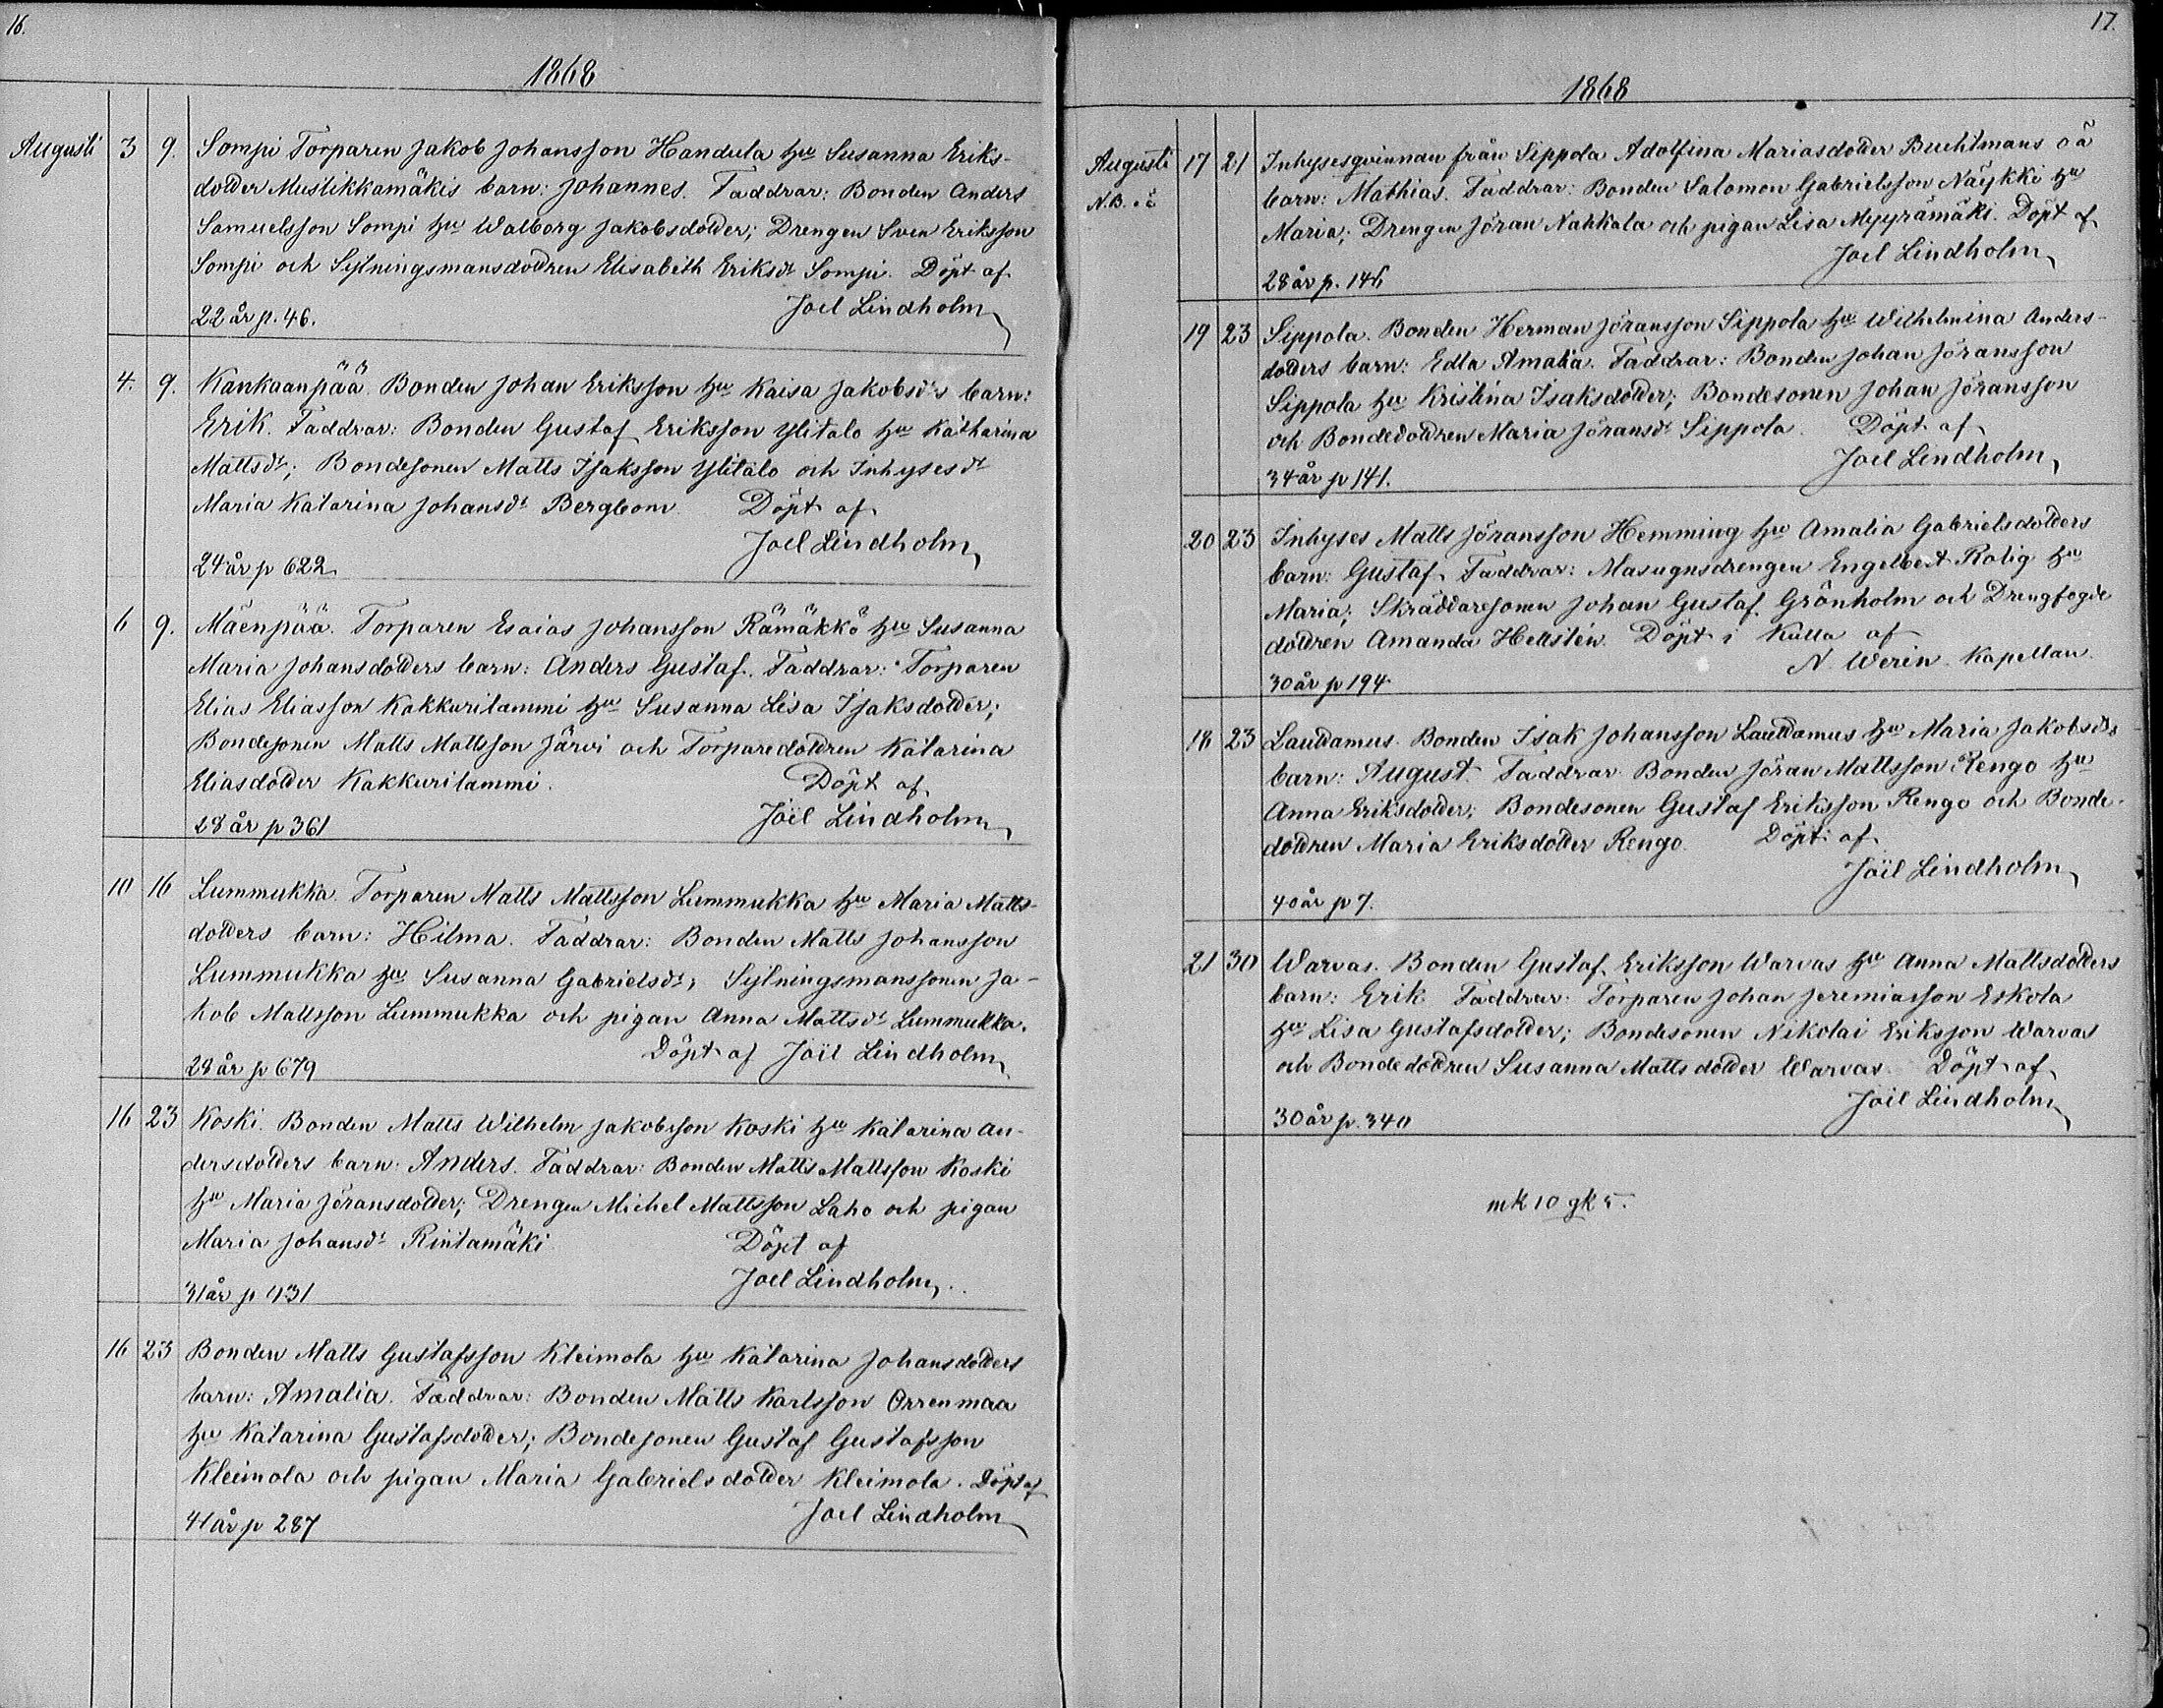 16.
1868
Augusti 3 9. Sompi Torparen Jakob Johansson Handula hu Susanna Eriks-
dotter Mustikkamäkis barn: Johannes. Faddrar: Bonden Anders
Samuelsson Sompi hu Walborg Jakobsdotter; Drengen Sven Eriksson
Sompi och Sytningsmansdottren Elisabeth Eriksdr Sompi. Döpt af
22 år p. 46. Joel Lindholm
4. 9. Kankaanpää. Bonden Johan Eriksson hu Kaisa Jakobsdrs barn:
Erik. Faddrar: Bonden Gustaf Eriksson Ylitalo hu Katharina
Mattsdr; Bondesonen Matts Isaksson Ylitalo och Inhysesdr
Maria Katarina Johansdr Bergbom. Döpt af
Joel Lindholm
24 år p 622
6 9. Mäenpää. Torparen Esaias Johansson Rämäkkö hu Susanna
Maria Johansdotters barn: Anders Gustaf. Faddrar: Torparen
Elias Eliasson Kakkurilammi hu Susanna Lisa Isaksdotter;
Bondesonen Matts Mattsson Järvi och Torparedottren Katarina
Eliasdotter Kakkurilammi. Döpt af
28 år p 361 Joël Lindholm
10 16 Lummukka. Torparen Matts Mattsson Lummukka hu Maria Matts-
dotters barn: Hilma. Faddrar: Bonden Matts Johansson
Lummukka hu Susanna Gabrielsdr; Sytningsmanssonen Ja-
kob Mattsson Lummukka och pigan Anna Mattsdr Lummukka.
Döpt af Joël Lindholm
28 år p 679
16 23 Koski. Bonden Matts Wilhelm Jakobsson Koski hu Katarina An-
dersdotters barn: Anders. Faddrar: Bonden Matts Mattsson Koski
hu Maria Jöransdotter; Drengen Michel Mattsson Laho och pigan
Maria Johansdr Rintamäki Döpt af
Joel Lindholm
31 år p 431
16 23 Bonden Matts Gustafsson Kleimola hu Katarina Johansdotters
barn: Amalia. Faddrar: Bonden Matts Karlsson Orrenmaa
hu Katarina Gustafsdotter; Bondesonen Gustaf Gustafsson
Kleimola och pigan Maria Gabrielsdotter Kleimola. Döpt af
41 år p 287 Joel Lindholm
17.
1868
Augusti 17 21 Inhysesqvinnan från Sippola Adolfina Mariasdotter Buchtmans o ä
N.B. o ä barn: Mathias. Faddrar: Bonden Salomon Gabrielsson Näykki hu
Maria; Drengen Jöran Nahkala och pigan Lisa Myyrämäki. Döpt af
Joel Lindholm
28 år p. 146
19 23 Sippola. Bonden Herman Jöransson Sippola hu Wilhelmina Anders-
dotters barn: Edla Amalia. Faddrar: Bonden Johan Jöransson
Sippola hu Kristina Isaksdotter; Bondesonen Johan Jöransson
och Bondedottren Maria Jöransdr Sippola. Döpt af
Joel Lindholm
34 år p 141.
20 23 Inhyses Matts Jöransson Hemming hu Amalia Gabrielsdotters
barn: Gustaf. Faddrar: Masugnsdrengen Engelbert Rolig hu
Maria; Skräddaresonen Johan Gustaf Grönholm och Drengfogde
dottren Amanda Hellstén. Döpt i Kulla af
N. Werin. Kapellan.
30 år p 194
18 23 Lautdamus. Bonden Isak Johansson Lautdamus hu Maria Jakobsdrs
barn: August. Faddrar: Bonden Jöran Mattsson Rengo hu
Anna Eriksdotter; Bondesonen Gustaf Eriksson Rengo och Bonde-
dottren Maria Eriksdotter Rengo. Döpt af
Joël Lindholm
40 år p 7.
21 30 Warvas. Bonden Gustaf Eriksson Warvas hu Anna Mattsdotters
barn: Erik. Faddrar: Torparen Johan Jeremiasson Eskola
hu Lisa Gustafsdotter; Bondesonen Nikolai Eriksson Warvas
och Bondedottren Susanna Mattsdotter Warvas. Döpt af
Joël Lindholm
30 år p. 340
mk 10 gk 5.